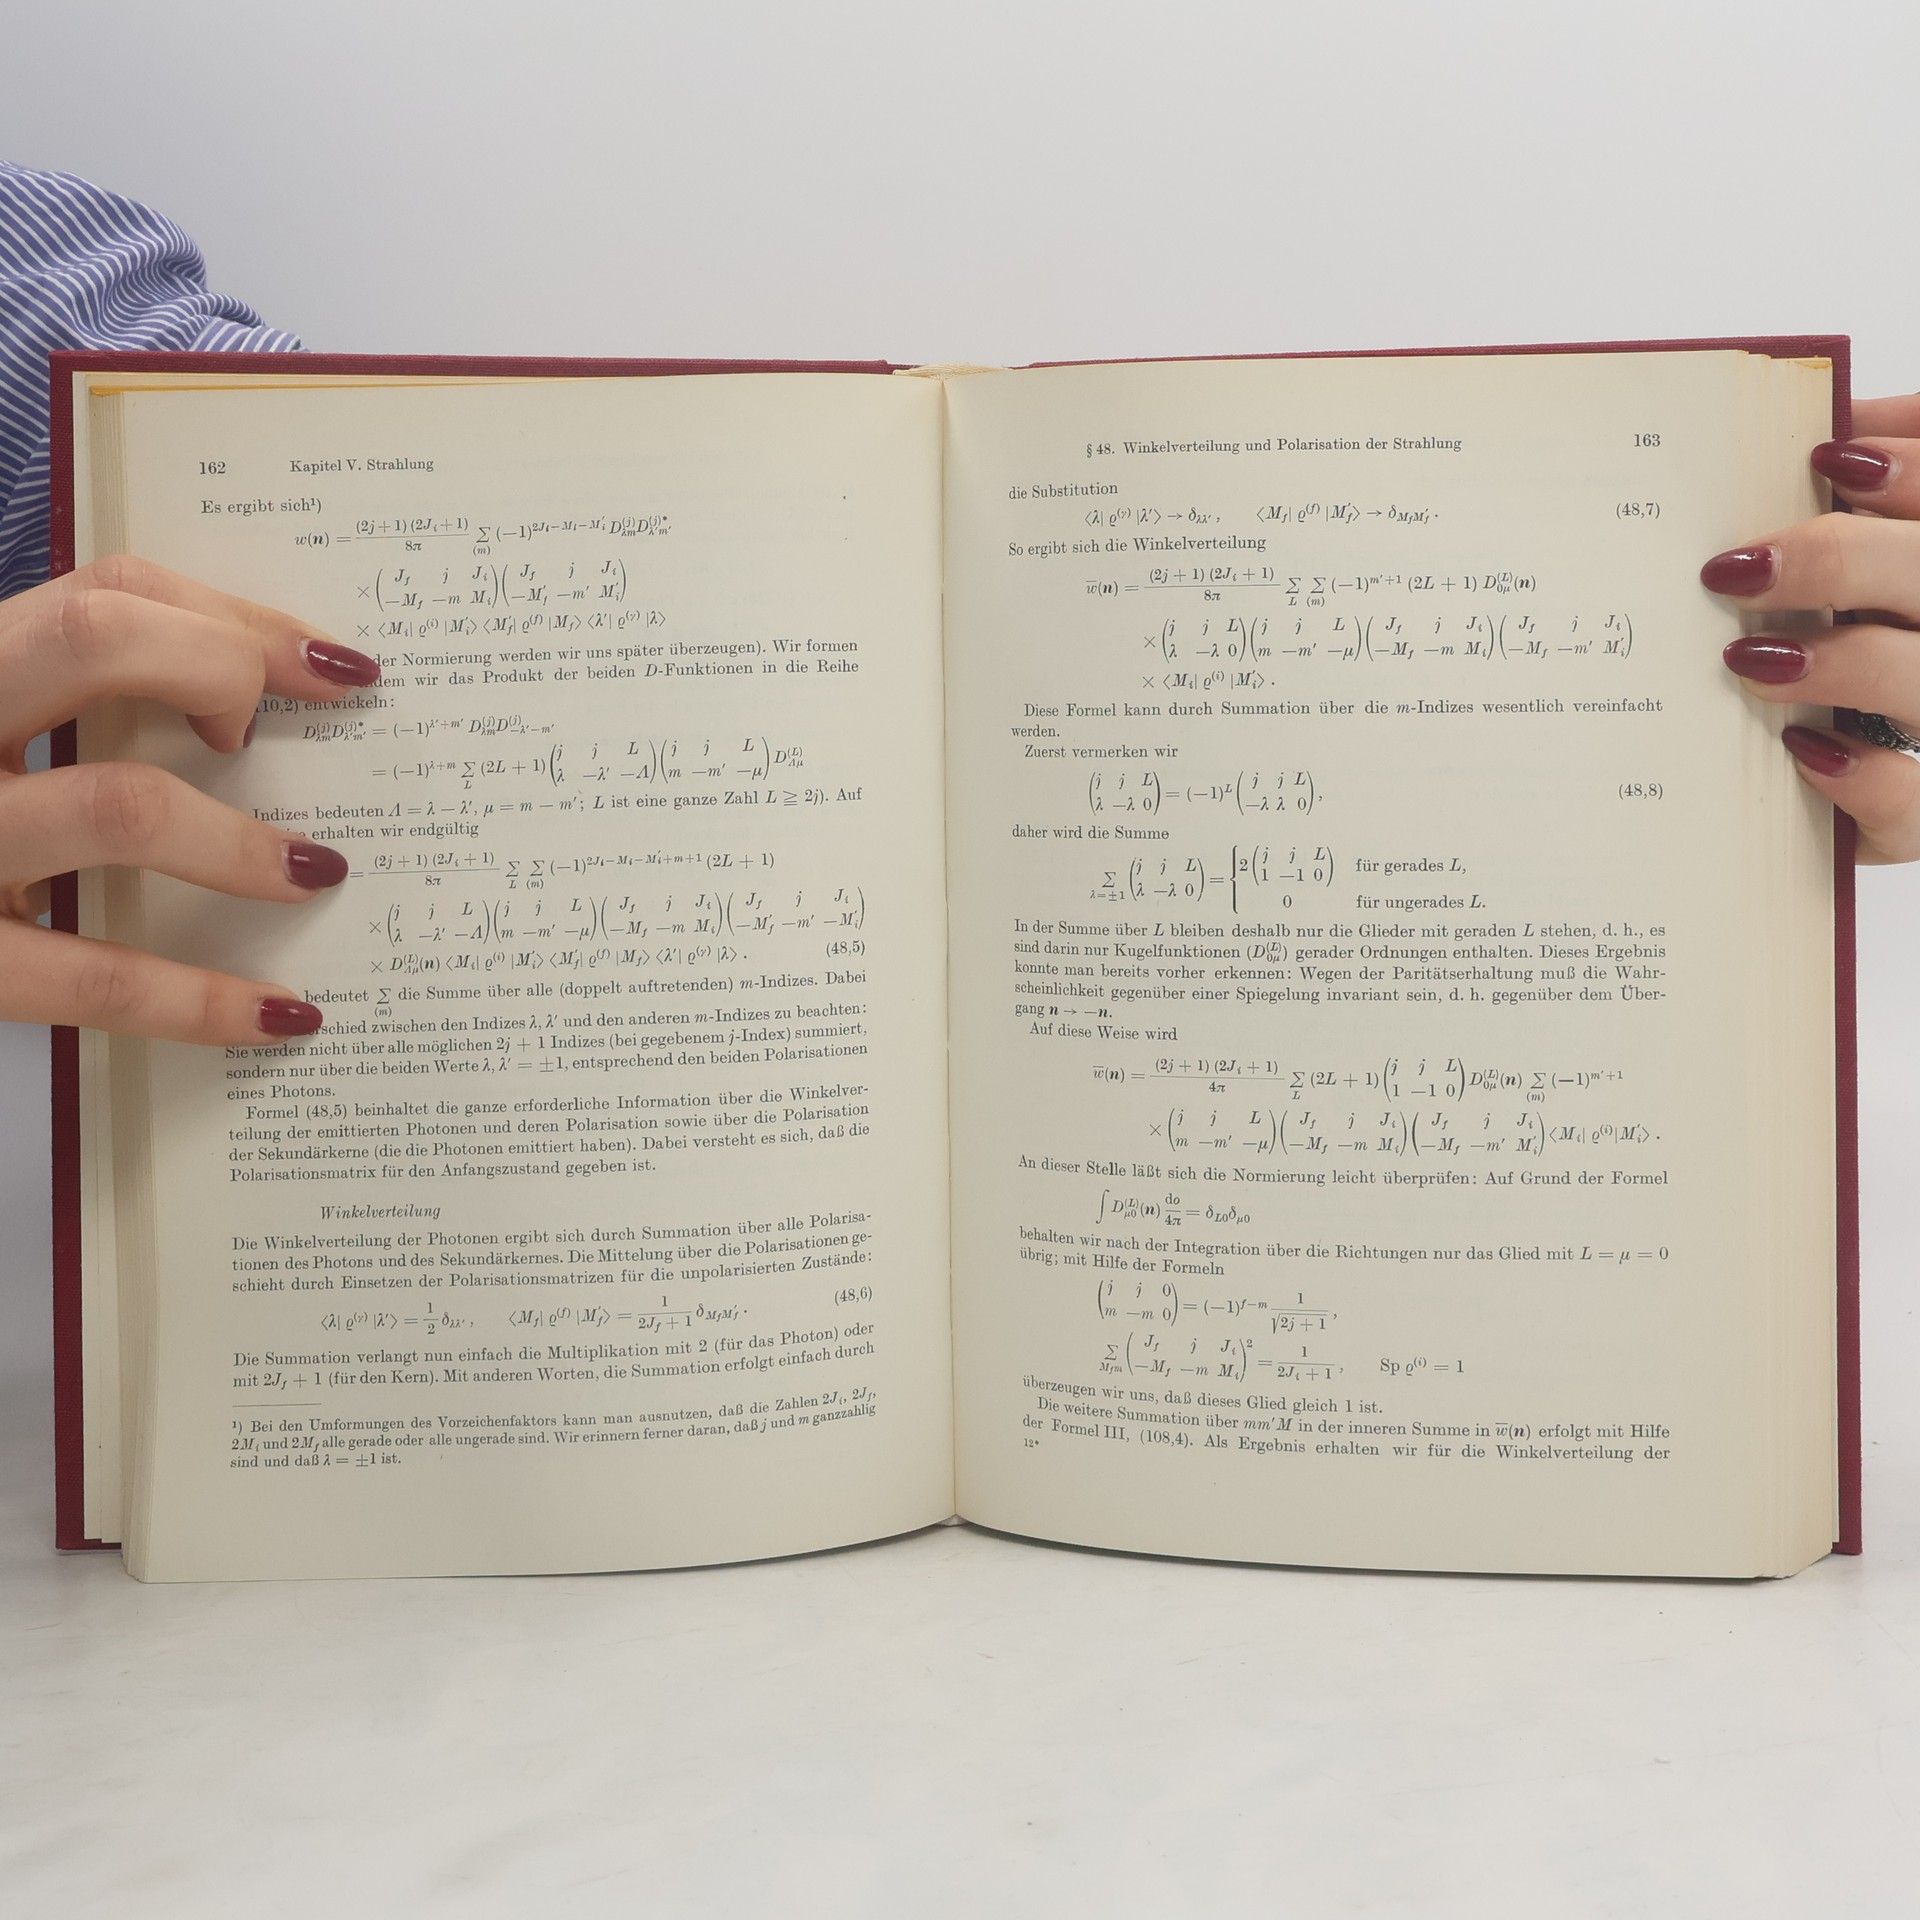 162 Kapitel V. Strahlung
Es ergibt sich¹)
w(n) = (2j+1) (2J_i+1) / 8π ∑_(m) (−1)^{2J_i−M_i−M_i′} D^{(j)}_{λm} D^{(j)*}_{λ′m′}
× (J_f j J_i; −M_f −m M_i) (J_f j J_i; −M_f′ −m′ M_i′)
× ⟨M_i| ϱ^{(i)} |M_i′⟩ ⟨M_f′| ϱ^{(f)} |M_f⟩ ⟨λ′| ϱ^{(γ)} |λ⟩
der Normierung werden wir uns später überzeugen). Wir formen
dem wir das Produkt der beiden D-Funktionen in die Reihe
10,2) entwickeln:
D^{(j)}_{λm} D^{(j)*}_{λ′m′} = (−1)^{λ′+m′} D^{(j)}_{λm} D^{(j)}_{−λ′−m′}
= (−1)^{λ+m} ∑_L (2L + 1) (j j L; λ −λ′ −Λ) (j j L; m −m′ −μ) D^{(L)}_{Λμ}
Indizes bedeuten Λ = λ − λ′, μ = m − m′; L ist eine ganze Zahl L ≧ 2j). Auf
erhalten wir endgültig
= (2j + 1) (2J_i + 1) / 8π ∑_L ∑_(m) (−1)^{2J_i−M_i−M_i′+m+1} (2L + 1)
× (j j L; λ −λ′ −Λ) (j j L; m −m′ −μ) (J_f j J_i; −M_f −m M_i) (J_f j J_i; −M_f′ −m′ −M_i′)
× D^{(L)}_{Λμ}(n) ⟨M_i| ϱ^{(i)} |M_i′⟩ ⟨M_f′| ϱ^{(f)} |M_f⟩ ⟨λ′| ϱ^{(γ)} |λ⟩ . (48,5)
bedeutet ∑_(m) die Summe über alle (doppelt auftretenden) m-Indizes. Dabei
schied zwischen den Indizes λ, λ′ und den anderen m-Indizes zu beachten:
Sie werden nicht über alle möglichen 2j + 1 Indizes (bei gegebenem j-Index) summiert,
sondern nur über die beiden Werte λ, λ′ = ±1, entsprechend den beiden Polarisationen
eines Photons.
Formel (48,5) beinhaltet die ganze erforderliche Information über die Winkelver-
teilung der emittierten Photonen und deren Polarisation sowie über die Polarisation
der Sekundärkerne (die die Photonen emittiert haben). Dabei versteht es sich, daß die
Polarisationsmatrix für den Anfangszustand gegeben ist.
Winkelverteilung
Die Winkelverteilung der Photonen ergibt sich durch Summation über alle Polarisa-
tionen des Photons und des Sekundärkernes. Die Mittelung über die Polarisationen ge-
schieht durch Einsetzen der Polarisationsmatrizen für die unpolarisierten Zustände:
⟨λ| ϱ^{(γ)} |λ′⟩ = 1/2 δ_{λλ′} , ⟨M_f| ϱ^{(f)} |M_f′⟩ = 1/(2J_f + 1) δ_{M_f M_f′} . (48,6)
Die Summation verlangt nun einfach die Multiplikation mit 2 (für das Photon) oder
mit 2J_f + 1 (für den Kern). Mit anderen Worten, die Summation erfolgt einfach durch
¹) Bei den Umformungen des Vorzeichenfaktors kann man ausnutzen, daß die Zahlen 2J_i, 2J_f,
2M_i und 2M_f alle gerade oder alle ungerade sind. Wir erinnern ferner daran, daß j und m ganzzahlig
sind und daß λ = ±1 ist.
§ 48. Winkelverteilung und Polarisation der Strahlung 163
die Substitution
⟨λ| ϱ^{(γ)} |λ′⟩ → δ_{λλ′} , ⟨M_f| ϱ^{(f)} |M_f′⟩ → δ_{M_f M_f′} . (48,7)
So ergibt sich die Winkelverteilung
w̄(n) = (2j + 1) (2J_i + 1) / 8π ∑_L ∑_(m) (−1)^{m′+1} (2L + 1) D^{(L)}_{0μ}(n)
× (j j L; λ −λ 0) (j j L; m −m′ −μ) (J_f j J_i; −M_f −m M_i) (J_f j J_i; −M_f −m′ M_i′)
× ⟨M_i| ϱ^{(i)} |M_i′⟩ .
Diese Formel kann durch Summation über die m-Indizes wesentlich vereinfacht
werden.
Zuerst vermerken wir
(j j L; λ −λ 0) = (−1)^L (j j L; −λ λ 0), (48,8)
daher wird die Summe
∑_{λ=±1} (j j L; λ −λ 0) = { 2 (j j L; 1 −1 0) für gerades L,
0 für ungerades L.
In der Summe über L bleiben deshalb nur die Glieder mit geraden L stehen, d. h., es
sind darin nur Kugelfunktionen (D^{(L)}_{0μ}) gerader Ordnungen enthalten. Dieses Ergebnis
konnte man bereits vorher erkennen: Wegen der Paritätserhaltung muß die Wahr-
scheinlichkeit gegenüber einer Spiegelung invariant sein, d. h. gegenüber dem Über-
gang n → −n.
Auf diese Weise wird
w̄(n) = (2j + 1) (2J_i + 1) / 4π ∑_L (2L + 1) (j j L; 1 −1 0) D^{(L)}_{0μ}(n) ∑_(m) (−1)^{m′+1}
× (j j L; m −m′ −μ) (J_f j J_i; −M_f −m M_i) (J_f j J_i; −M_f −m′ M_i′) ⟨M_i| ϱ^{(i)} |M_i′⟩ .
An dieser Stelle läßt sich die Normierung leicht überprüfen: Auf Grund der Formel
∫ D^{(L)}_{μ0}(n) do/4π = δ_{L0} δ_{μ0}
behalten wir nach der Integration über die Richtungen nur das Glied mit L = μ = 0
übrig; mit Hilfe der Formeln
(j j 0; m −m 0) = (−1)^{f−m} 1/√(2j + 1) ,
∑_{M_f m} (J_f j J_i; −M_f −m M_i)² = 1/(2J_i + 1) , Sp ϱ^{(i)} = 1
überzeugen wir uns, daß dieses Glied gleich 1 ist.
Die weitere Summation über mm′M in der inneren Summe in w̄(n) erfolgt mit Hilfe
der Formel III, (108,4). Als Ergebnis erhalten wir für die Winkelverteilung der
12*